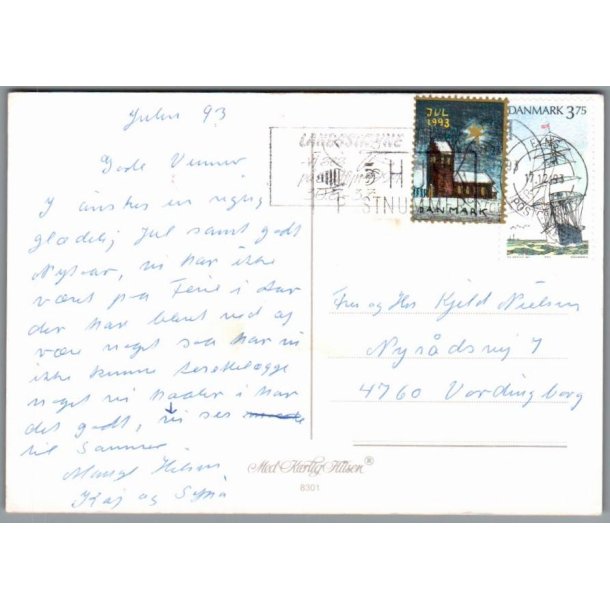 Julen 93
Gode Venner
I ønskes en rigtig
glædelig Jul samt godt
Nytaar, vi har ikke
været paa Ferie i Aar
der har været ved og
være noget saa har vi
ikke kunne
noget vi haaber i har
det godt, vi ses
til Sommer.
Mange Hilsen
Kaj og
JUL
1993
DANMARK
DANMARK 3.75
17.12.93
Fru og Hr Kjeld Nielsen
Nyrådsvej 7
4760 Vordingborg
Med Kærlig Hilsen ®
8301